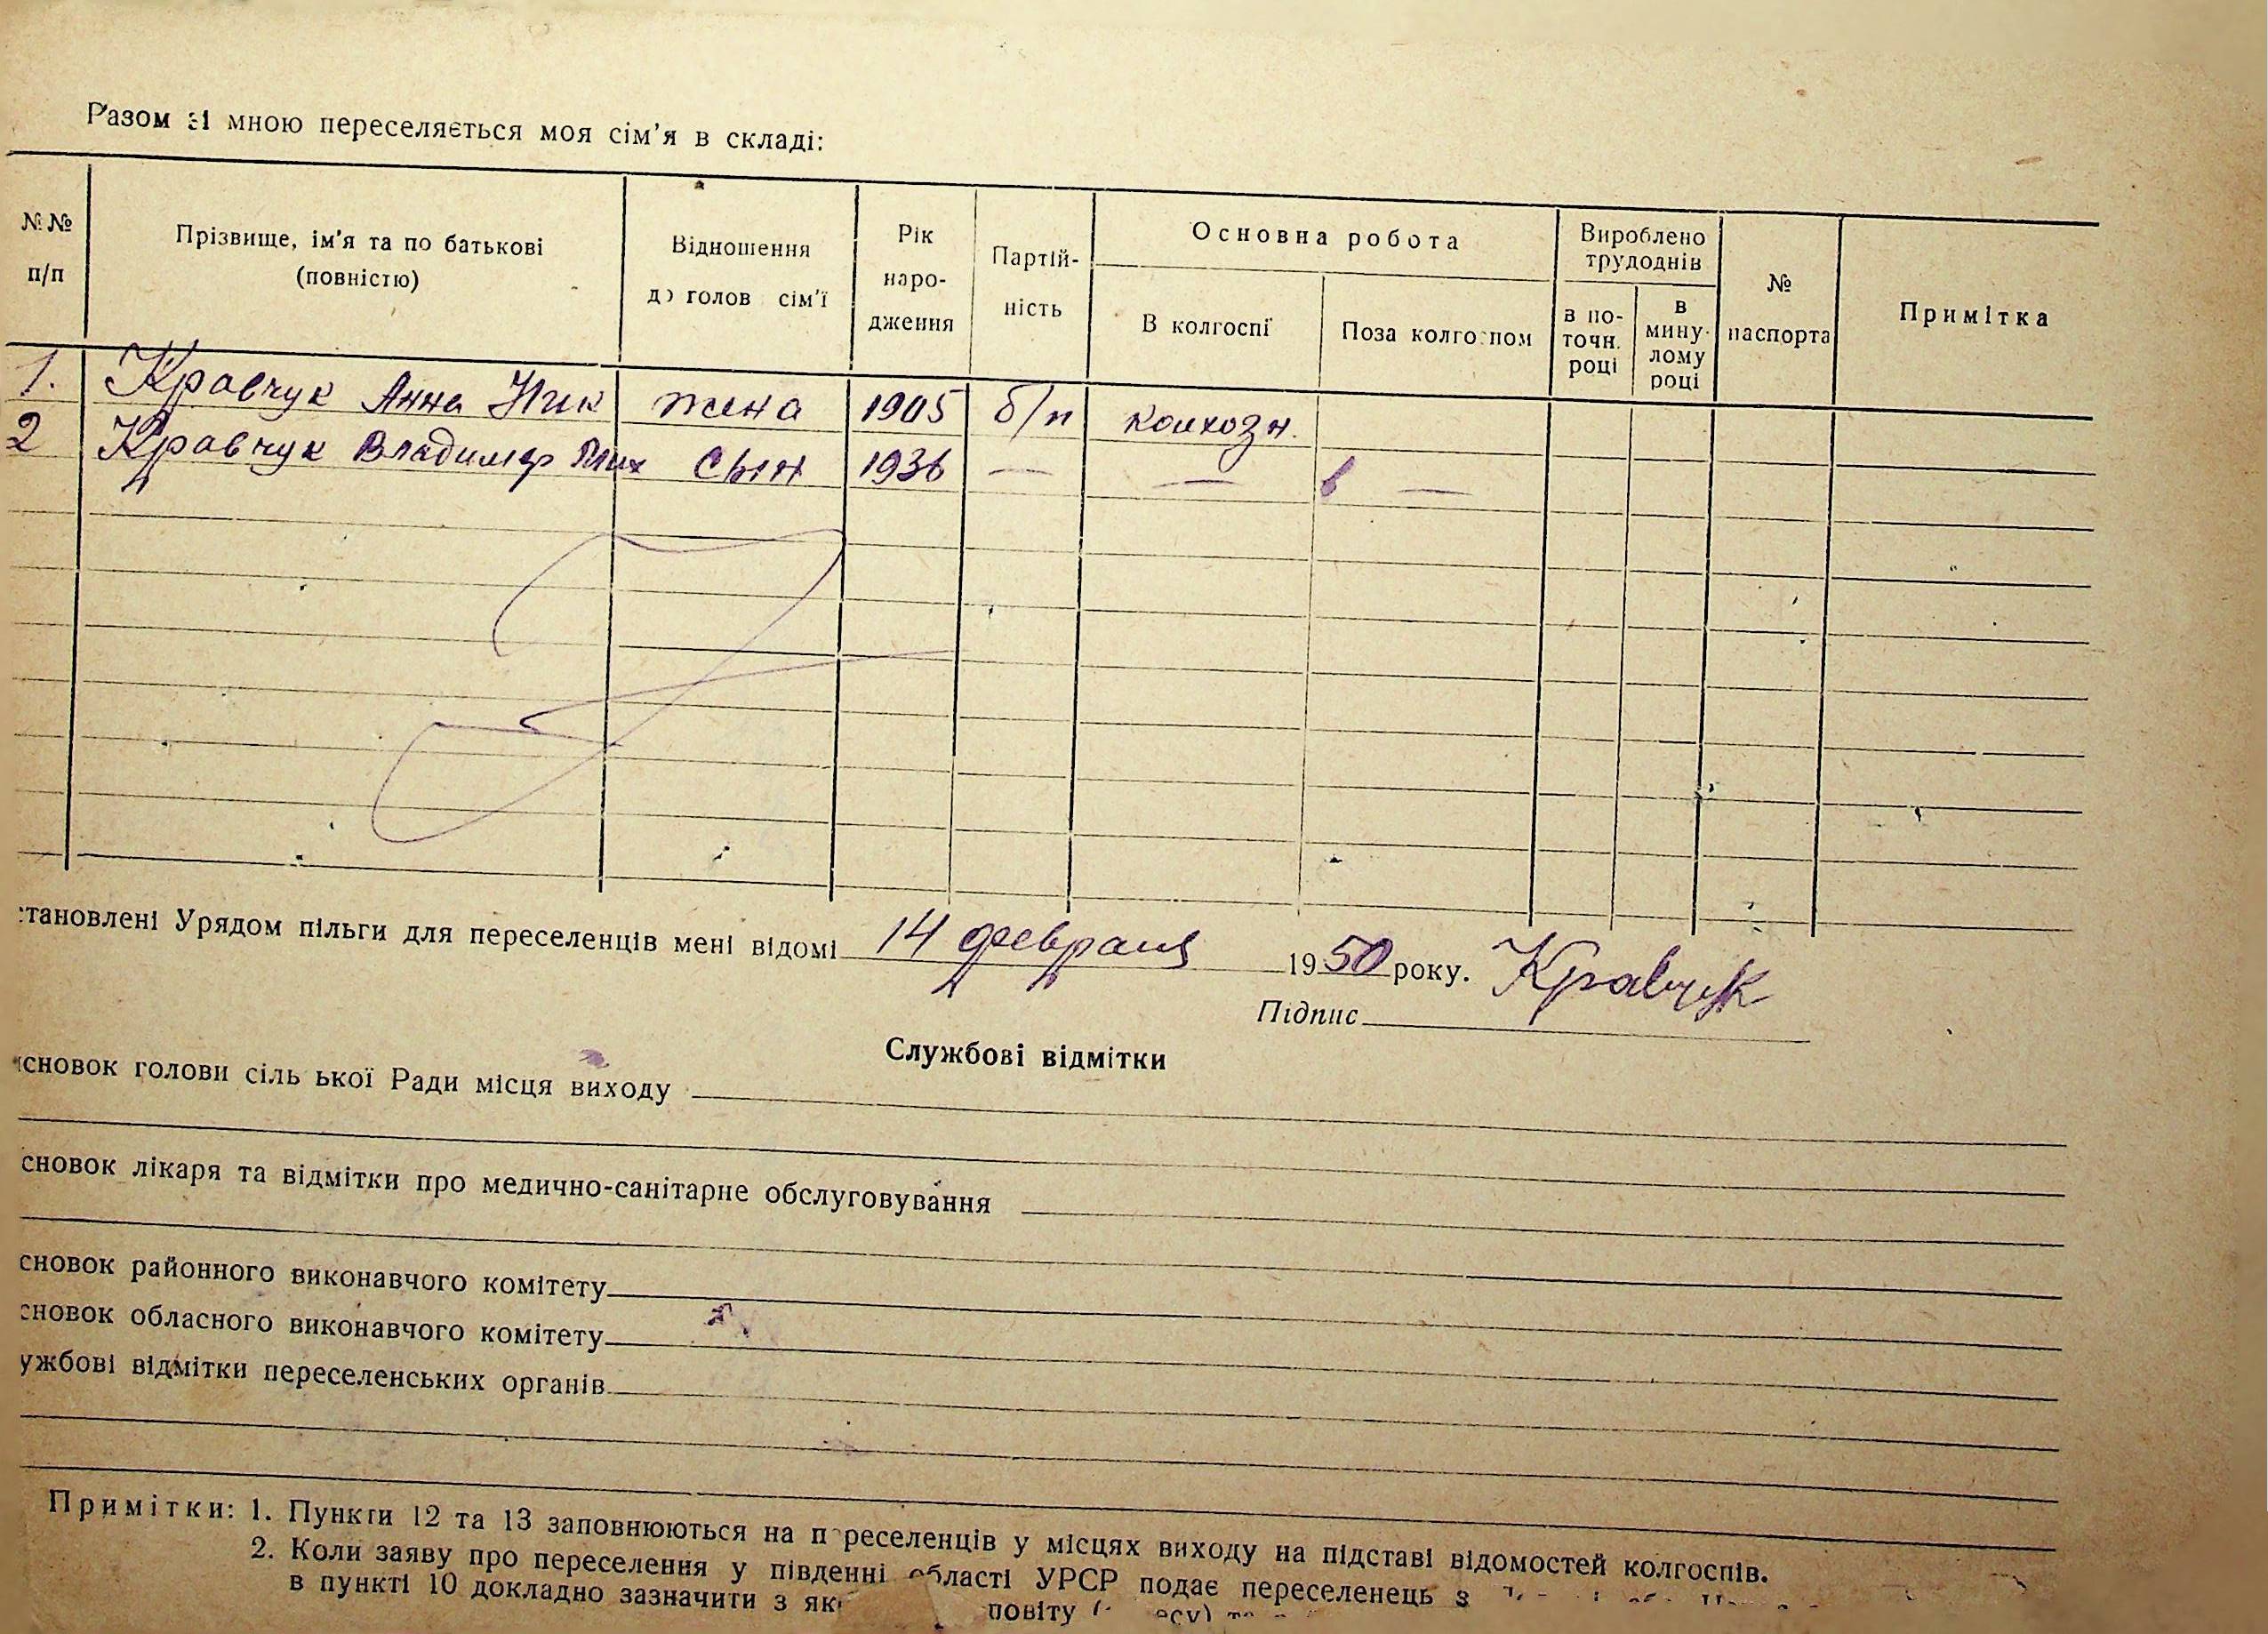 Разом зі мною переселяється моя сім'я в складі:
№№ п/п
Прізвище, ім'я та по батькові (повністю)
Відношення до голов сім'ї
Рік народження
Партійність
Основна робота
В колгоспі
Поза колгоспом
Вироблено трудоднів
в поточн. році
в минулому році
№ паспорта
Примітка
1. Кравчук Анна Ник жена 1905 б/п колхозн.
2 Кравчук Владимир Мих сын 1936 — — —
становлені Урядом пільги для переселенців мені відомі 14 февраля 1950 року. Кравчук
Підпис
Службові відмітки
сновок голови сільської Ради місця виходу
сновок лікаря та відмітки про медично-санітарне обслуговування
сновок районного виконавчого комітету
сновок обласного виконавчого комітету
ужбові відмітки переселенських органів
Примітки: 1. Пункти 12 та 13 заповнюються на переселенців у місцях виходу на підставі відомостей колгоспів.
2. Коли заяву про переселення у південні області УРСР подає переселенець з
в пункті 10 докладно зазначити з як повіту